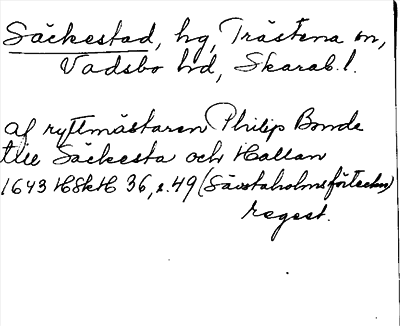 Säckestad, hg, Trästena sn,
Vadsbo hd, Skarab. l.
af ryttmästaren Philip Bonde
till Säckesta och Hallan
1643 HSkH 36, s. 49 (Sävstaholmsförteckn)
regest.